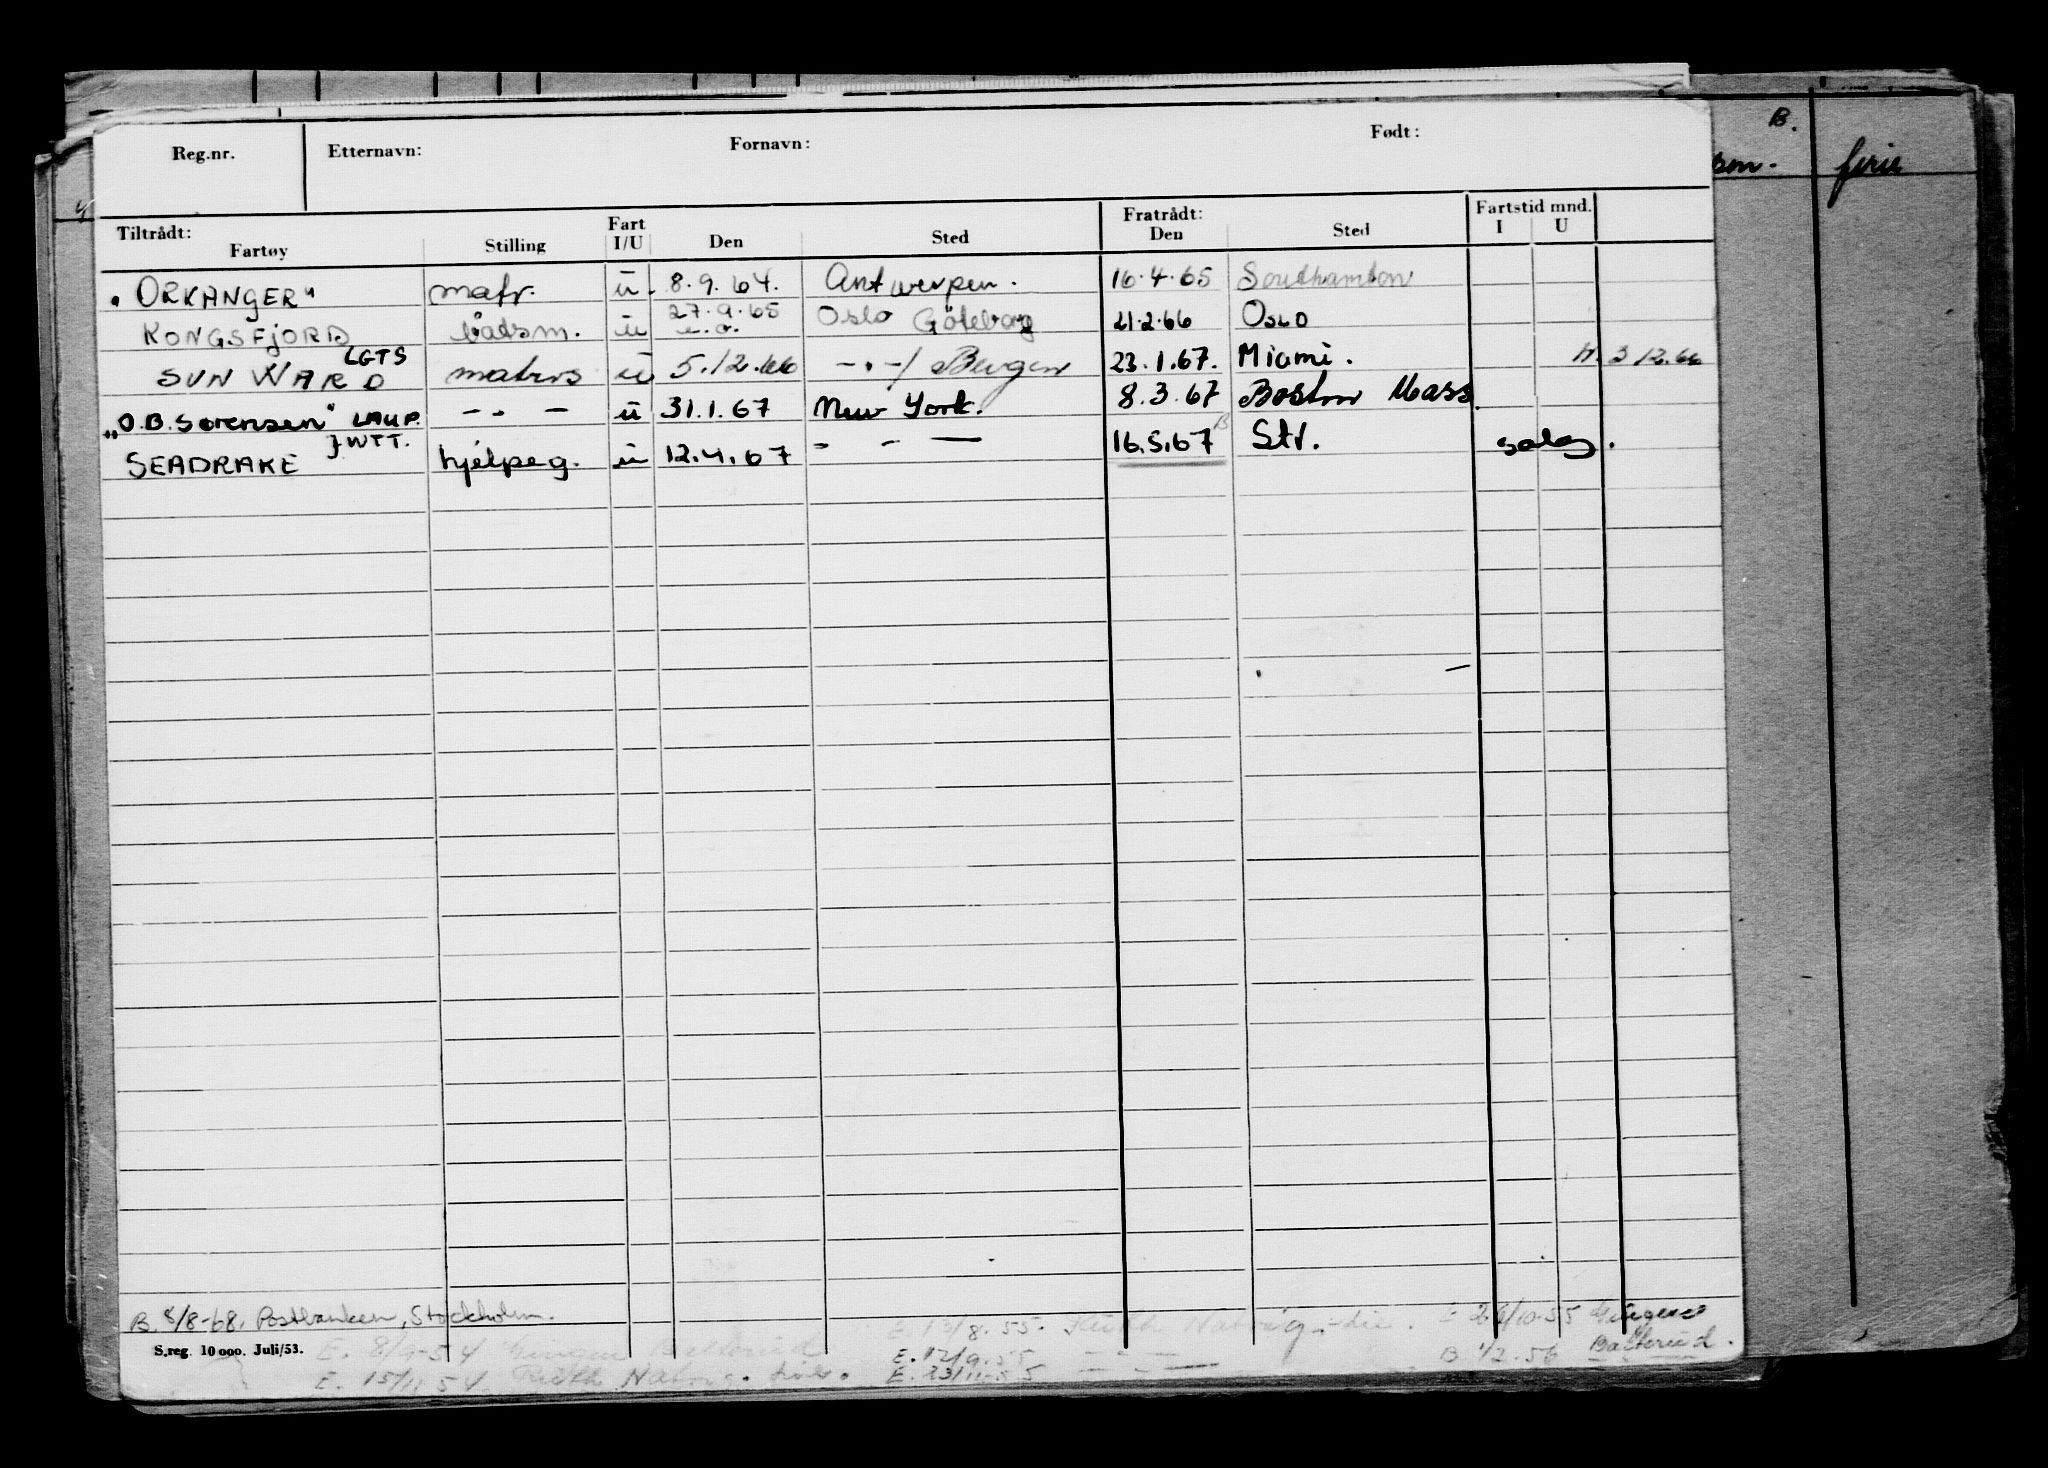 Reg.nr. Etternavn: Fornavn: Født: B.
ferie
Tiltrådt: Fart Fratrådt: Fartstid mnd.
Fartøy Stilling I/U Den Sted Den Sted I U
"ORKANGER" matr. ü. 8.9.64. Antwerpen. 16.4.65 Southamton
KONGSFJORD båtsm. ü 27.9.65 Oslo Göteborg 21.2.66 OSLO
LGTS
SUN WARD matros ü 5.12.66 -"-/ Bergen 23.1.67. Miami. H. 3 12.66
"O.B. Sørensen" LAUP. - " - ü 31.1.67 New York. 8.3.67 Boston Mass.
JWTT.
SEADRAKE hjelpeg. ü 12.4.67 - " - 16.5.67 B Str. salg.
B. 8/8-68. Postbanken, Stockholm.
E. 13/8.55. Ruth Natvig E 26/10.55
S.reg. 10 000. Juli/53. E. 8/9-54 E. 12/9.55 - " - B 1/2.56 Balterud.
E. 15/11 54. Ruth Natvig. E. 23/11-55 - " -